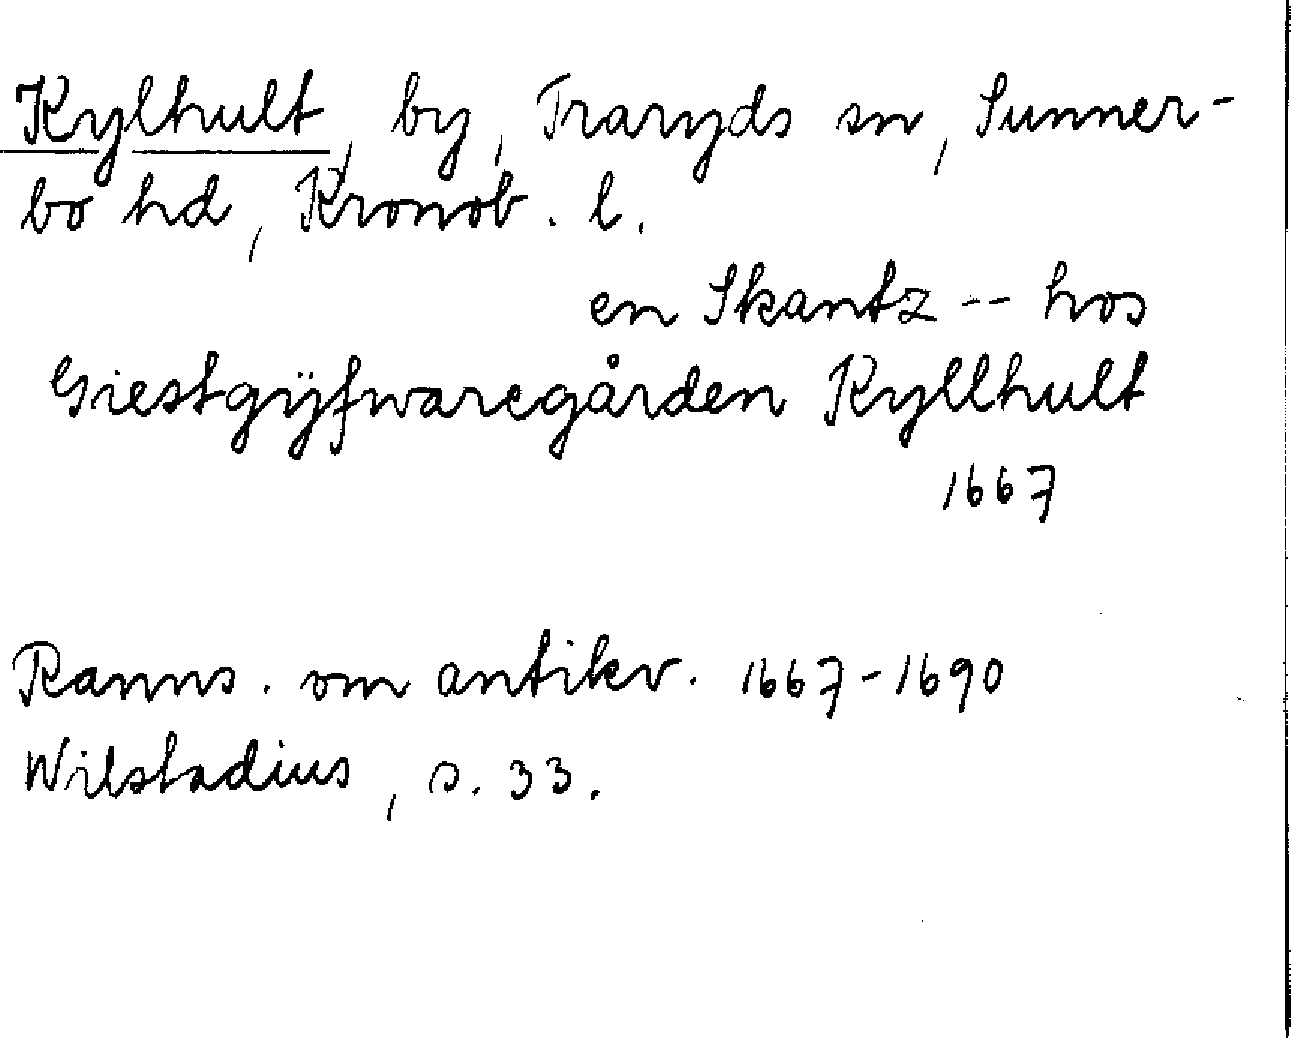 Kylhult, by, Traryds sn, Sunner-
bo hd, Kronob. l.
en Skantz -- hos
Giestgÿfwaregården Kyllhult
1667
Ranns. om antikv. 1667-1690
Wilstadius, s. 33.